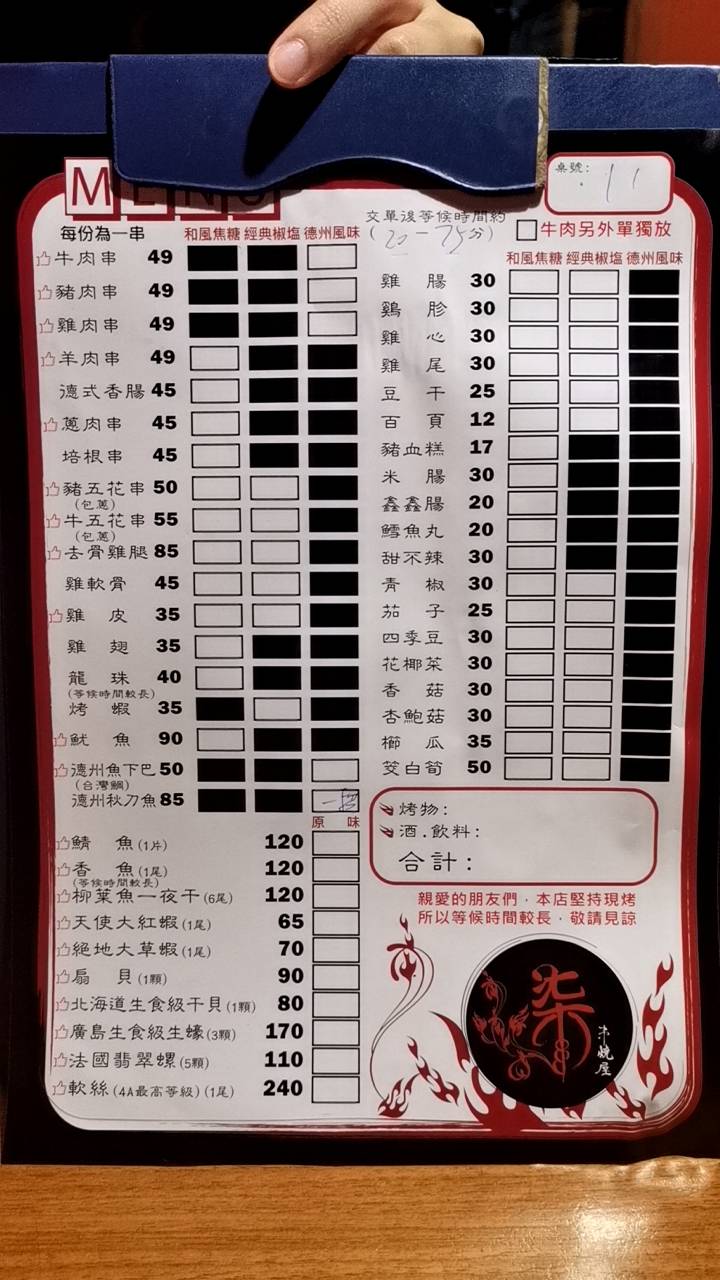 MENU
桌號: 11
每份為一串
和風焦糖 經典椒塩 德州風味
牛肉串 49
豬肉串 49
雞肉串 49
羊肉串 49
德式香腸 45
蔥肉串 45
培根串 45
豬五花串 50
(包蔥)
牛五花串 55
(包蔥)
去骨雞腿 85
雞軟骨 45
雞皮 35
雞翅 35
龍珠 40
(等候時間較長)
烤蝦 35
魷魚 90
德州魚下巴 50
(台灣鯛)
德州秋刀魚 85
原味
鯖魚(1片) 120
香魚(1尾) 120
(等候時間較長)
柳葉魚一夜干(6尾) 120
天使大紅蝦(1尾) 65
絕地大草蝦(1尾) 70
扇貝(1顆) 90
北海道生食級干貝(1顆) 80
廣島生食級生蠔(3顆) 170
法國翡翠螺(5顆) 110
軟絲(4A最高等級)(1尾) 240
交單後等候時間約
牛肉另外單獨放
和風焦糖 經典椒塩 德州風味
雞腸 30
鷄胗 30
雞心 30
雞尾 30
豆干 25
百頁 12
豬血糕 17
米腸 30
鑫鑫腸 20
鱈魚丸 20
甜不辣 30
青椒 30
茄子 25
四季豆 30
花椰菜 30
香菇 30
杏鮑菇 30
櫛瓜 35
筊白筍 50
烤物:
酒.飲料:
合計:
親愛的朋友們,本店堅持現烤
所以等候時間較長,敬請見諒
柒
串燒屋